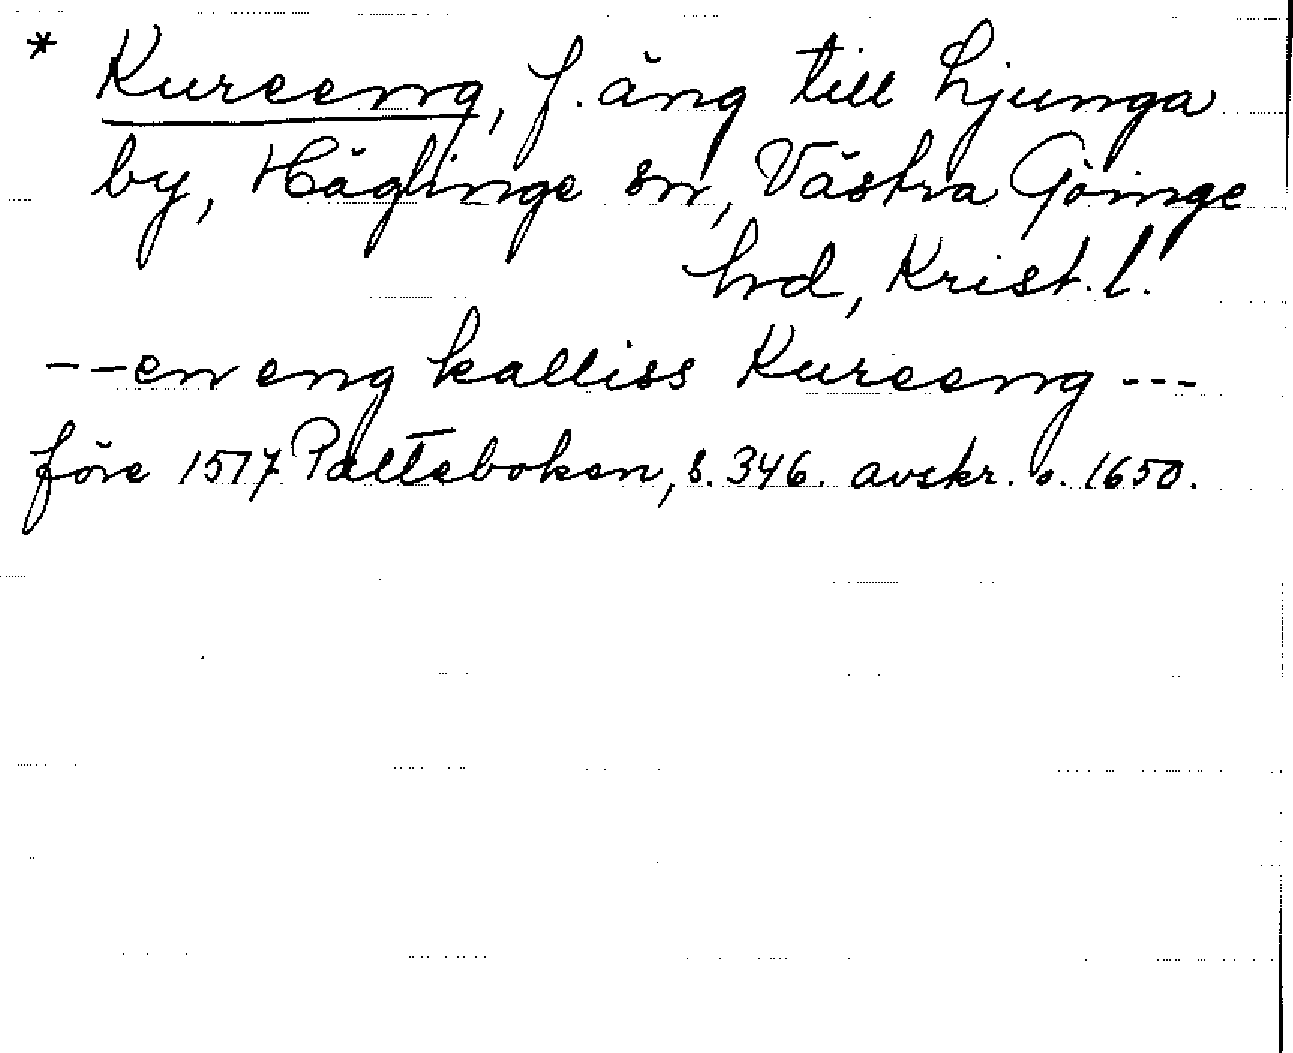 * Kureeng, f. äng till Ljunga
by, Häglinge sn, Västra Göinge
hrd, Krist. l.
-- en eng kalliss Kureeng ---
före 1517 Palteboken, s. 346. avskr. o. 1650.